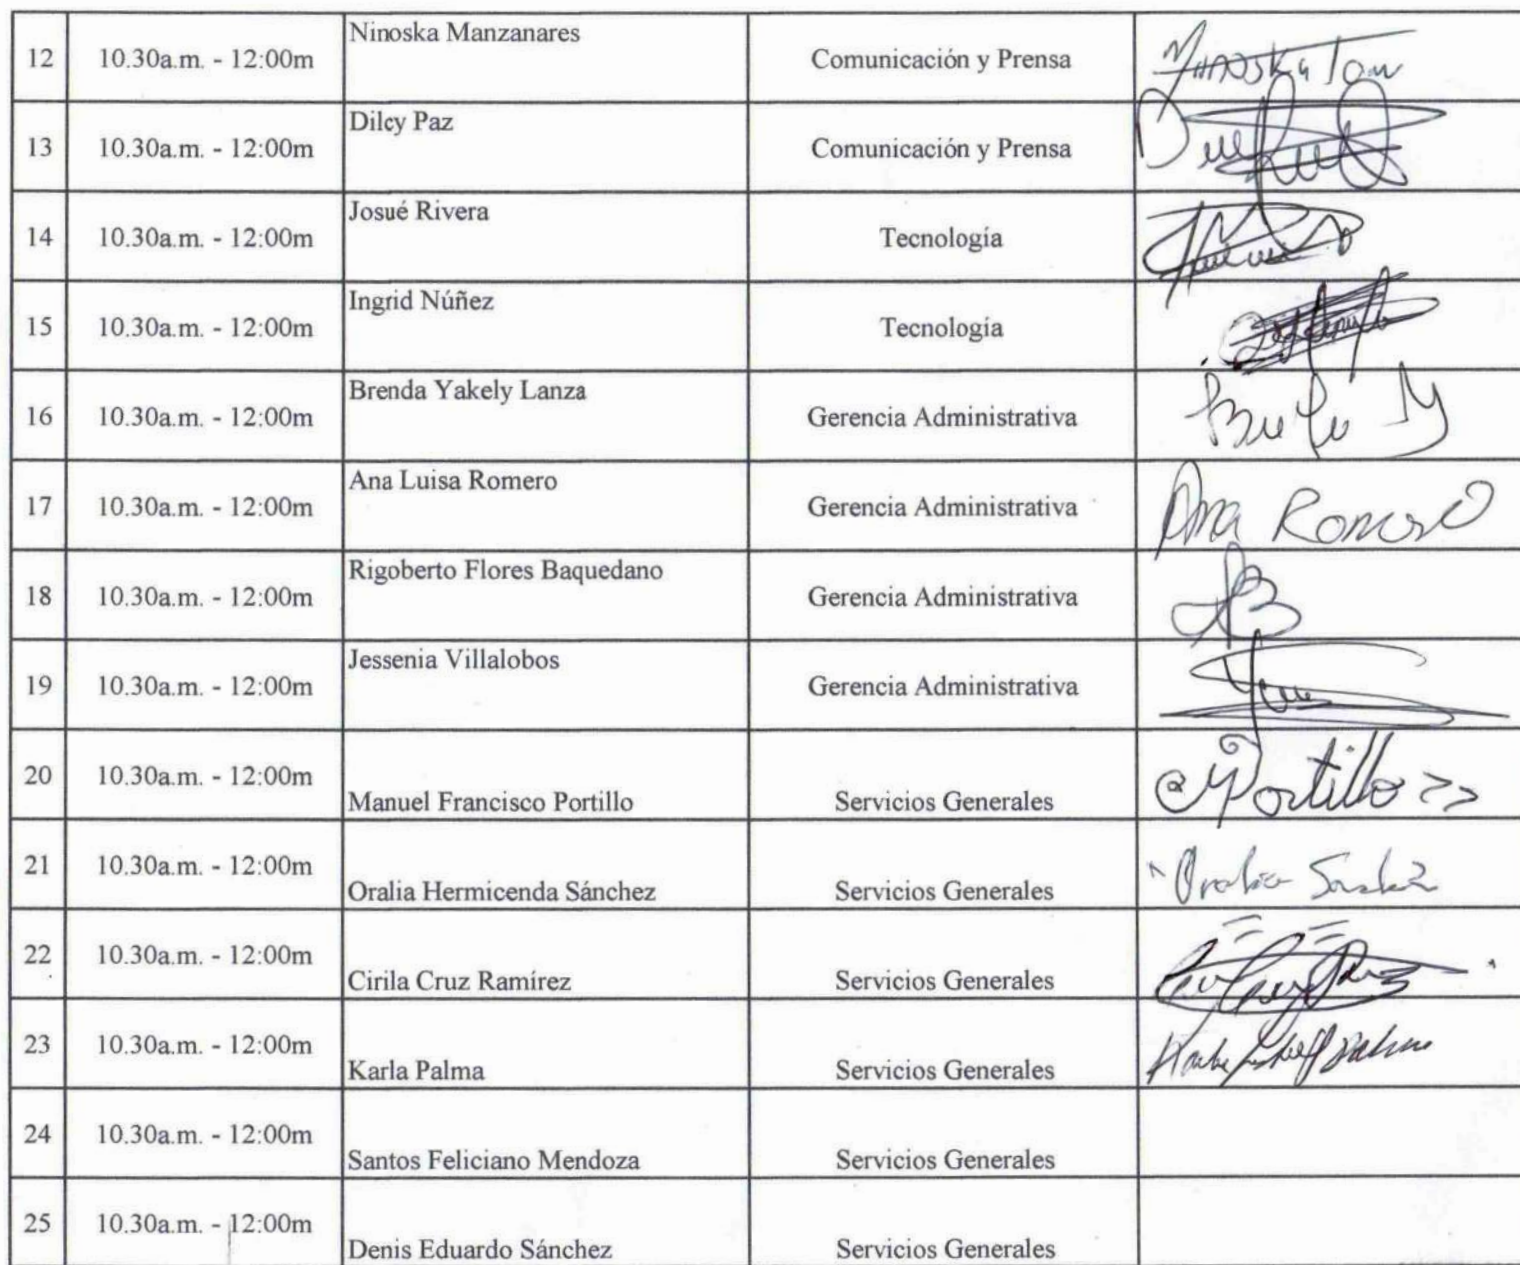 12 10.30a.m. - 12:00m Ninoska Manzanares Comunicación y Prensa
13 10.30a.m. - 12:00m Dilcy Paz Comunicación y Prensa
14 10.30a.m. - 12:00m Josué Rivera Tecnología
15 10.30a.m. - 12:00m Ingrid Núñez Tecnología
16 10.30a.m. - 12:00m Brenda Yakely Lanza Gerencia Administrativa
17 10.30a.m. - 12:00m Ana Luisa Romero Gerencia Administrativa Ana Romero
18 10.30a.m. - 12:00m Rigoberto Flores Baquedano Gerencia Administrativa
19 10.30a.m. - 12:00m Jessenia Villalobos Gerencia Administrativa
20 10.30a.m. - 12:00m Manuel Francisco Portillo Servicios Generales Portillo
21 10.30a.m. - 12:00m Oralia Hermicenda Sánchez Servicios Generales Oralia
22 10.30a.m. - 12:00m Cirila Cruz Ramírez Servicios Generales
23 10.30a.m. - 12:00m Karla Palma Servicios Generales
24 10.30a.m. - 12:00m Santos Feliciano Mendoza Servicios Generales
25 10.30a.m. - 12:00m Denis Eduardo Sánchez Servicios Generales